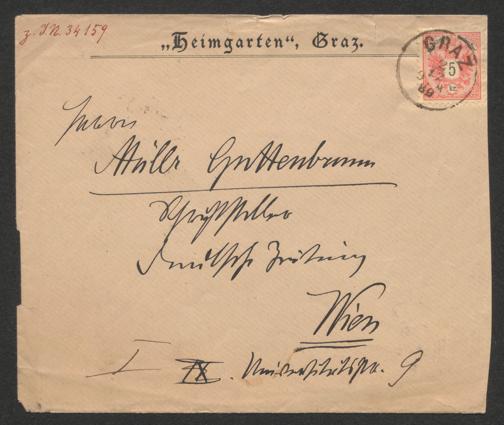 z. I.N. 34159
„Heimgarten“, Graz.
GRAZ
5
89
Herrn
Müller Guttenbrunn
Schriftsteller
Deutsche Zeitung
Wien
I IX. Universitätsstr. 9